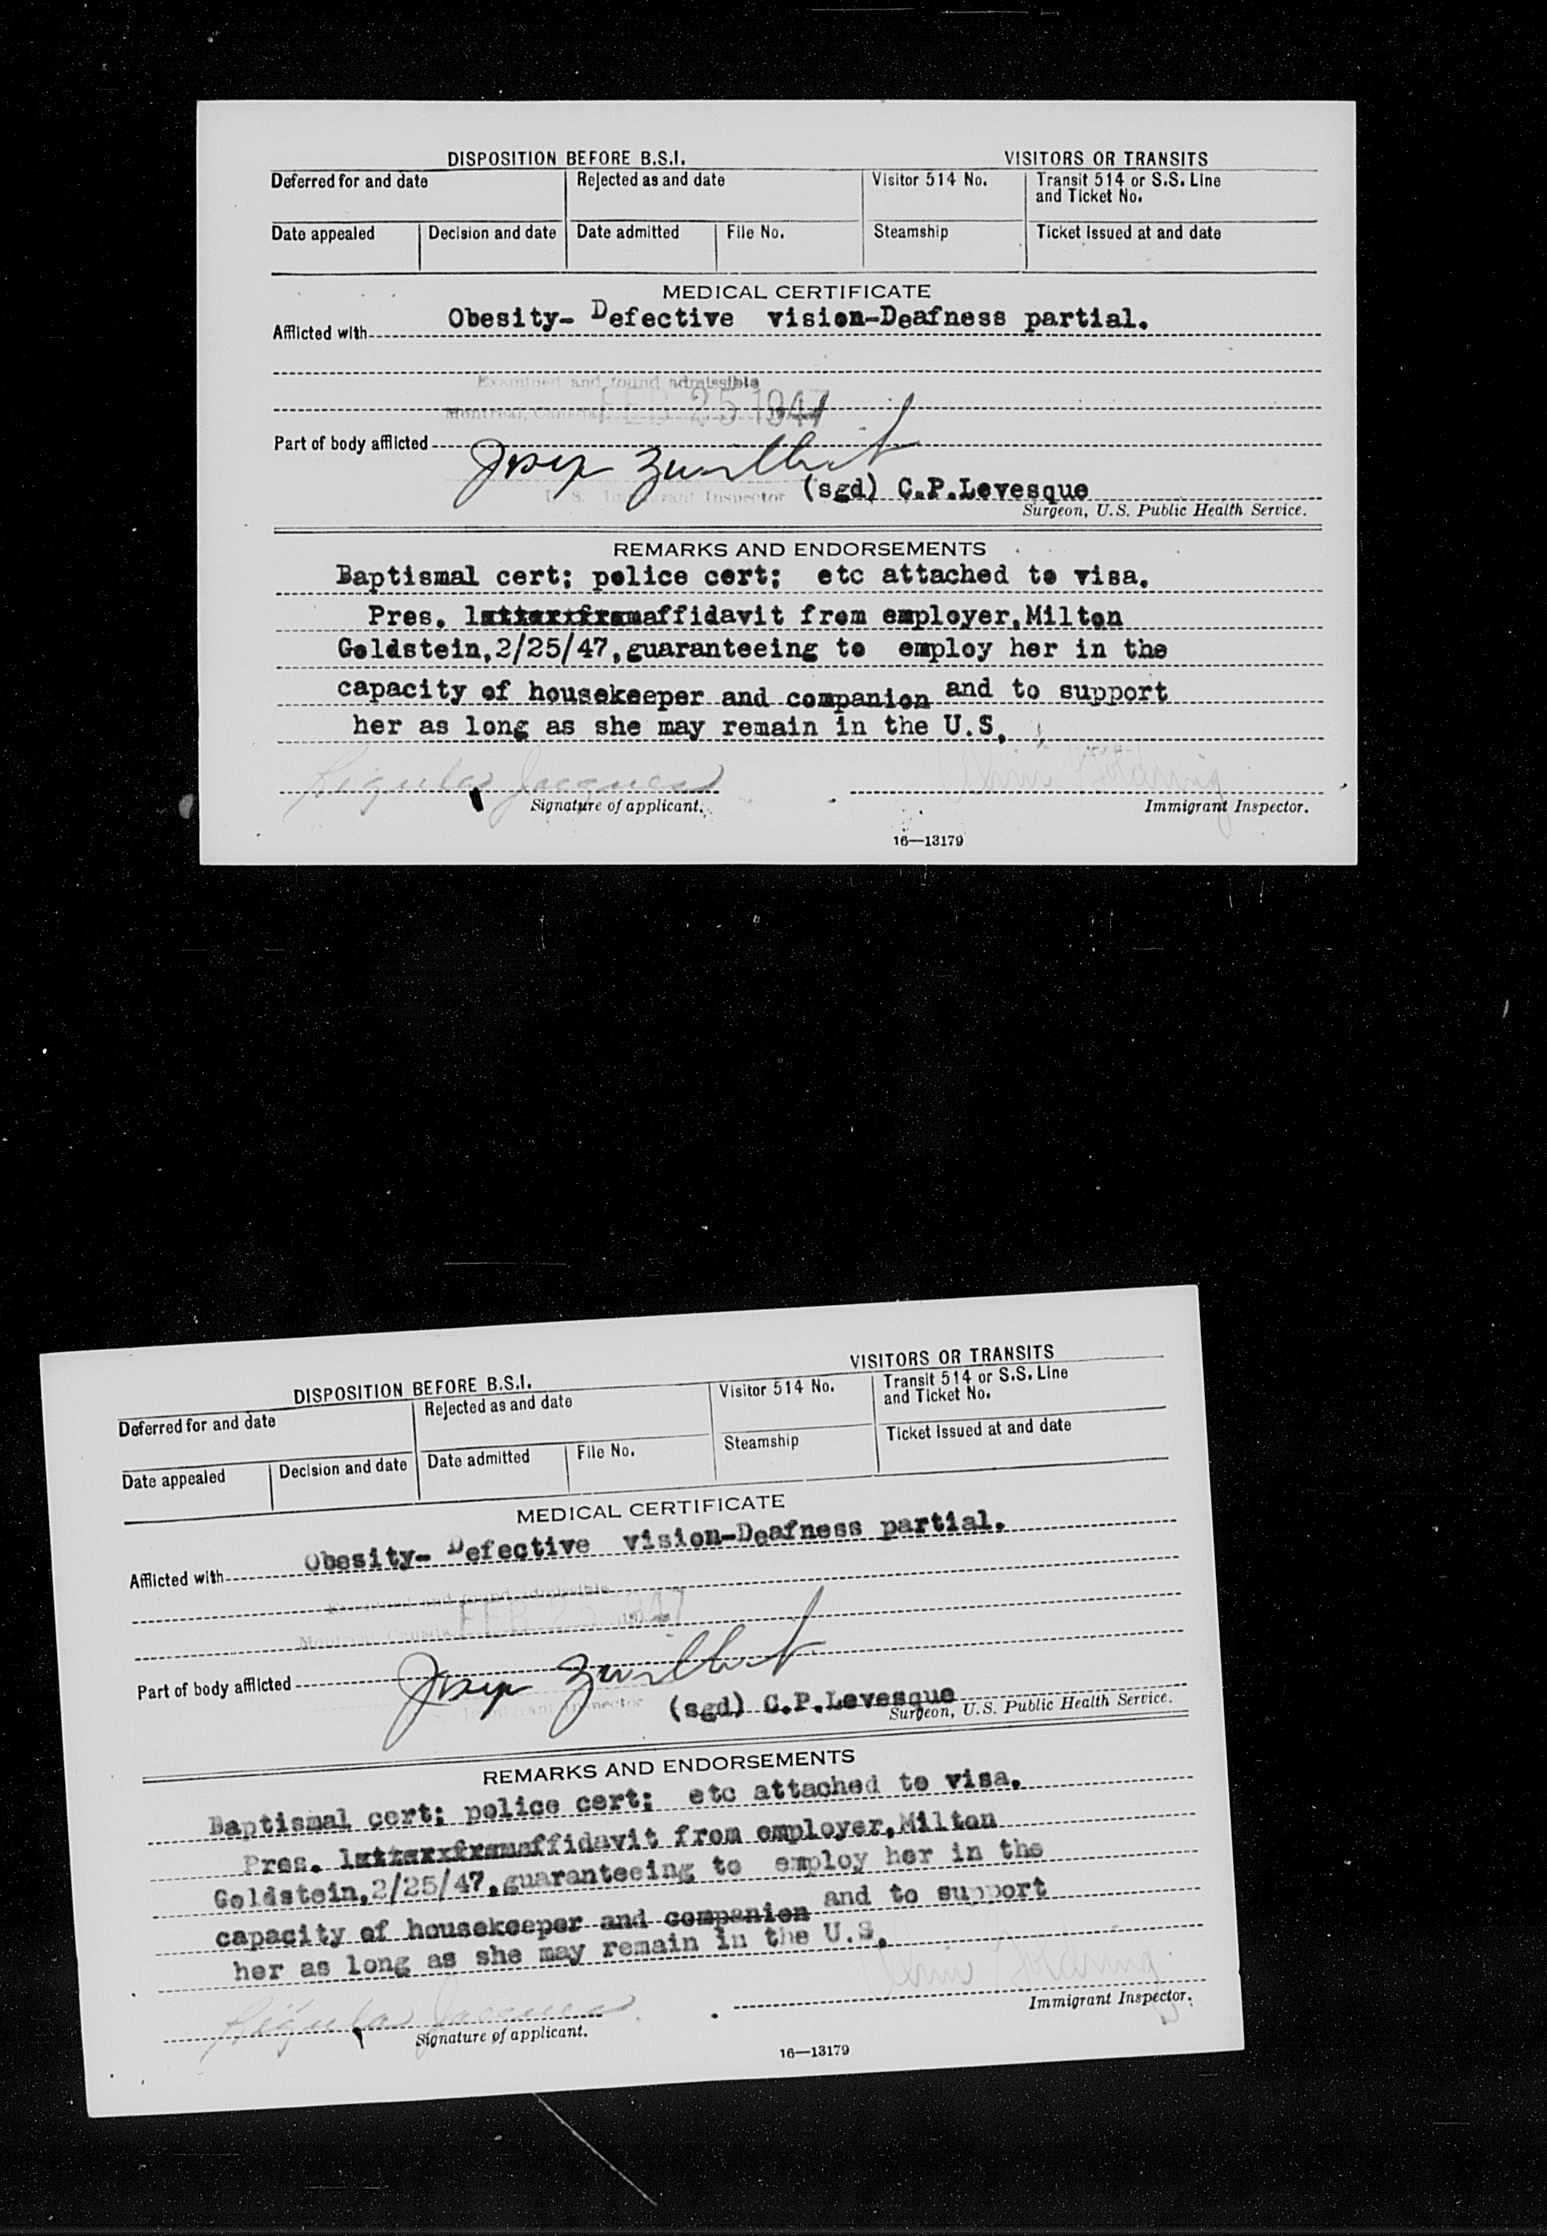 DISPOSITION BEFORE B.S.I. VISITORS OR TRANSITS
Deferred for and date Rejected as and date Visitor 514 No. Transit 514 or S.S. Line
and Ticket No.
Date appealed Decision and date Date admitted File No. Steamship Ticket issued at and date
MEDICAL CERTIFICATE
Afflicted with Obesity- Defective vision-Deafness partial.
Examined and found admissible
Montreal, Canada FEB 25 1947
Part of body afflicted
U.S. Immigrant Inspector (sgd) C.P.Levesque
Surgeon, U.S. Public Health Service.
REMARKS AND ENDORSEMENTS
Baptismal cert; police cert; etc attached to visa.
Pres. affidavit from employer,Milton
Goldstein,2/25/47,guaranteeing to employ her in the
capacity of housekeeper and companion and to support
her as long as she may remain in the U.S.
Jacques
Signature of applicant. Immigrant Inspector.
16—13179
DISPOSITION BEFORE B.S.I. VISITORS OR TRANSITS
Deferred for and date Rejected as and date Visitor 514 No. Transit 514 or S.S. Line
and Ticket No.
Date appealed Decision and date Date admitted File No. Steamship Ticket issued at and date
MEDICAL CERTIFICATE
Afflicted with Obesity- Defective vision-Deafness partial.
Examined and found admissible
Montreal, Canada FEB 25 1947
Part of body afflicted
Immigrant Inspector (sgd) C.P.Levesque
Surgeon, U.S. Public Health Service.
REMARKS AND ENDORSEMENTS
Baptismal cert; police cert; etc attached to visa.
Pres. affidavit from employer,Milton
Goldstein,2/25/47,guaranteeing to employ her in the
capacity of housekeeper and companion and to support
her as long as she may remain in the U.S.
Jacques
Signature of applicant. Immigrant Inspector.
16—13179